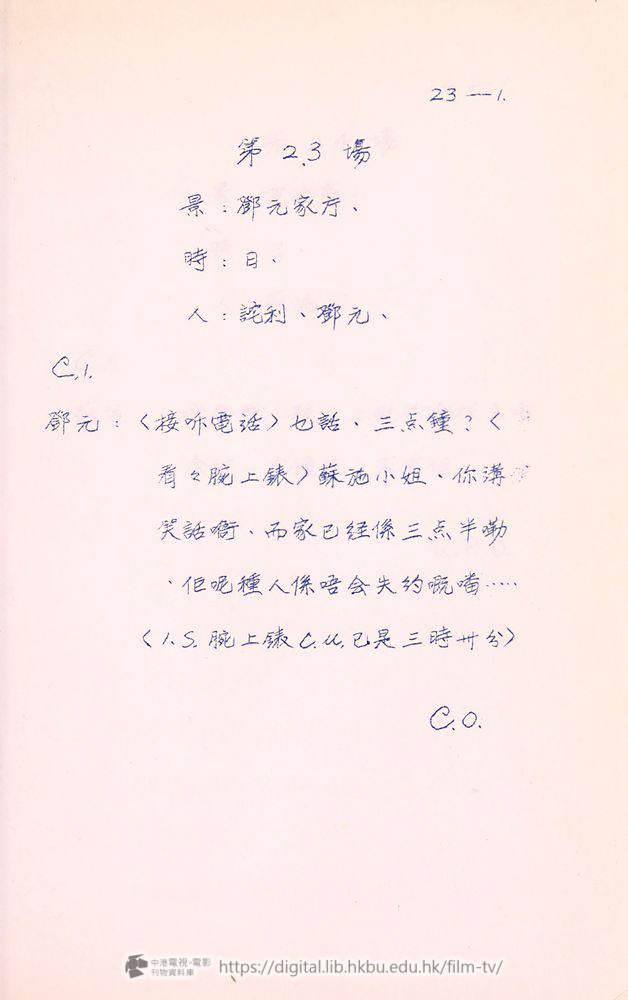 23—1.
第 23 場
景：鄧元家庁、
時：日、
人：詫利、鄧元、
C.1.
鄧元：〈接听電话〉乜話、三点鐘？〈
看々腕上錶〉蘇施小姐、你講
笑話啫、而家已経係三点半嘞
、但呢種人係唔会失约嘅噃……
〈I.S.腕上錶C.U.已是三時卅分〉
C.O.
中港電視·電影
刊物資料庫
https://digital.lib.hkbu.edu.hk/film-tv/